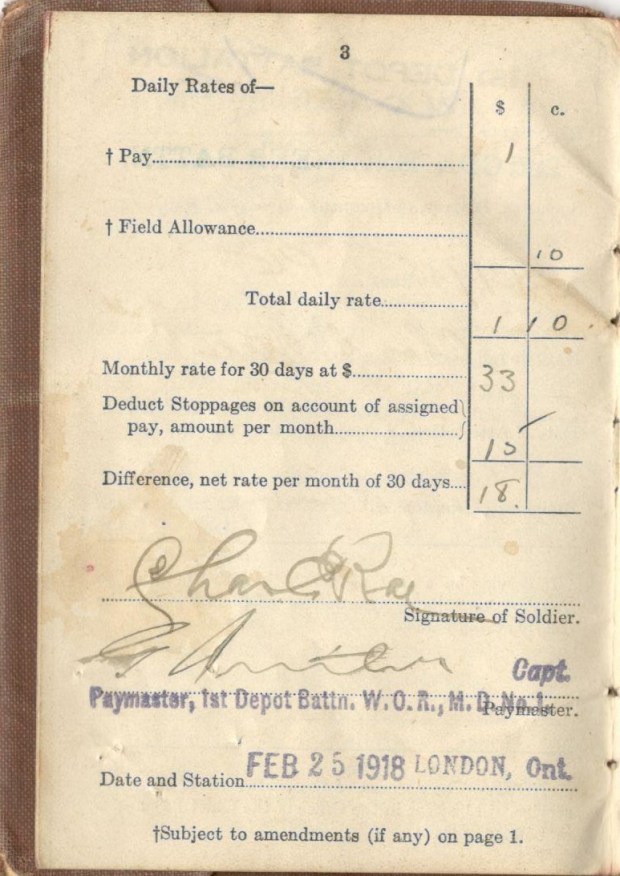 3
Daily Rates of—
$ c.
† Pay 1
† Field Allowance 10
Total daily rate 1 10
Monthly rate for 30 days at $ 33
Deduct Stoppages on account of assigned
pay, amount per month 15
Difference, net rate per month of 30 days 18.
Chas Rae
Signature of Soldier.
Capt.
Paymaster, 1st Depot Battn. W.O.R., M.D. No. 1 Paymaster.
Date and Station FEB 25 1918 LONDON, Ont.
†Subject to amendments (if any) on page 1.